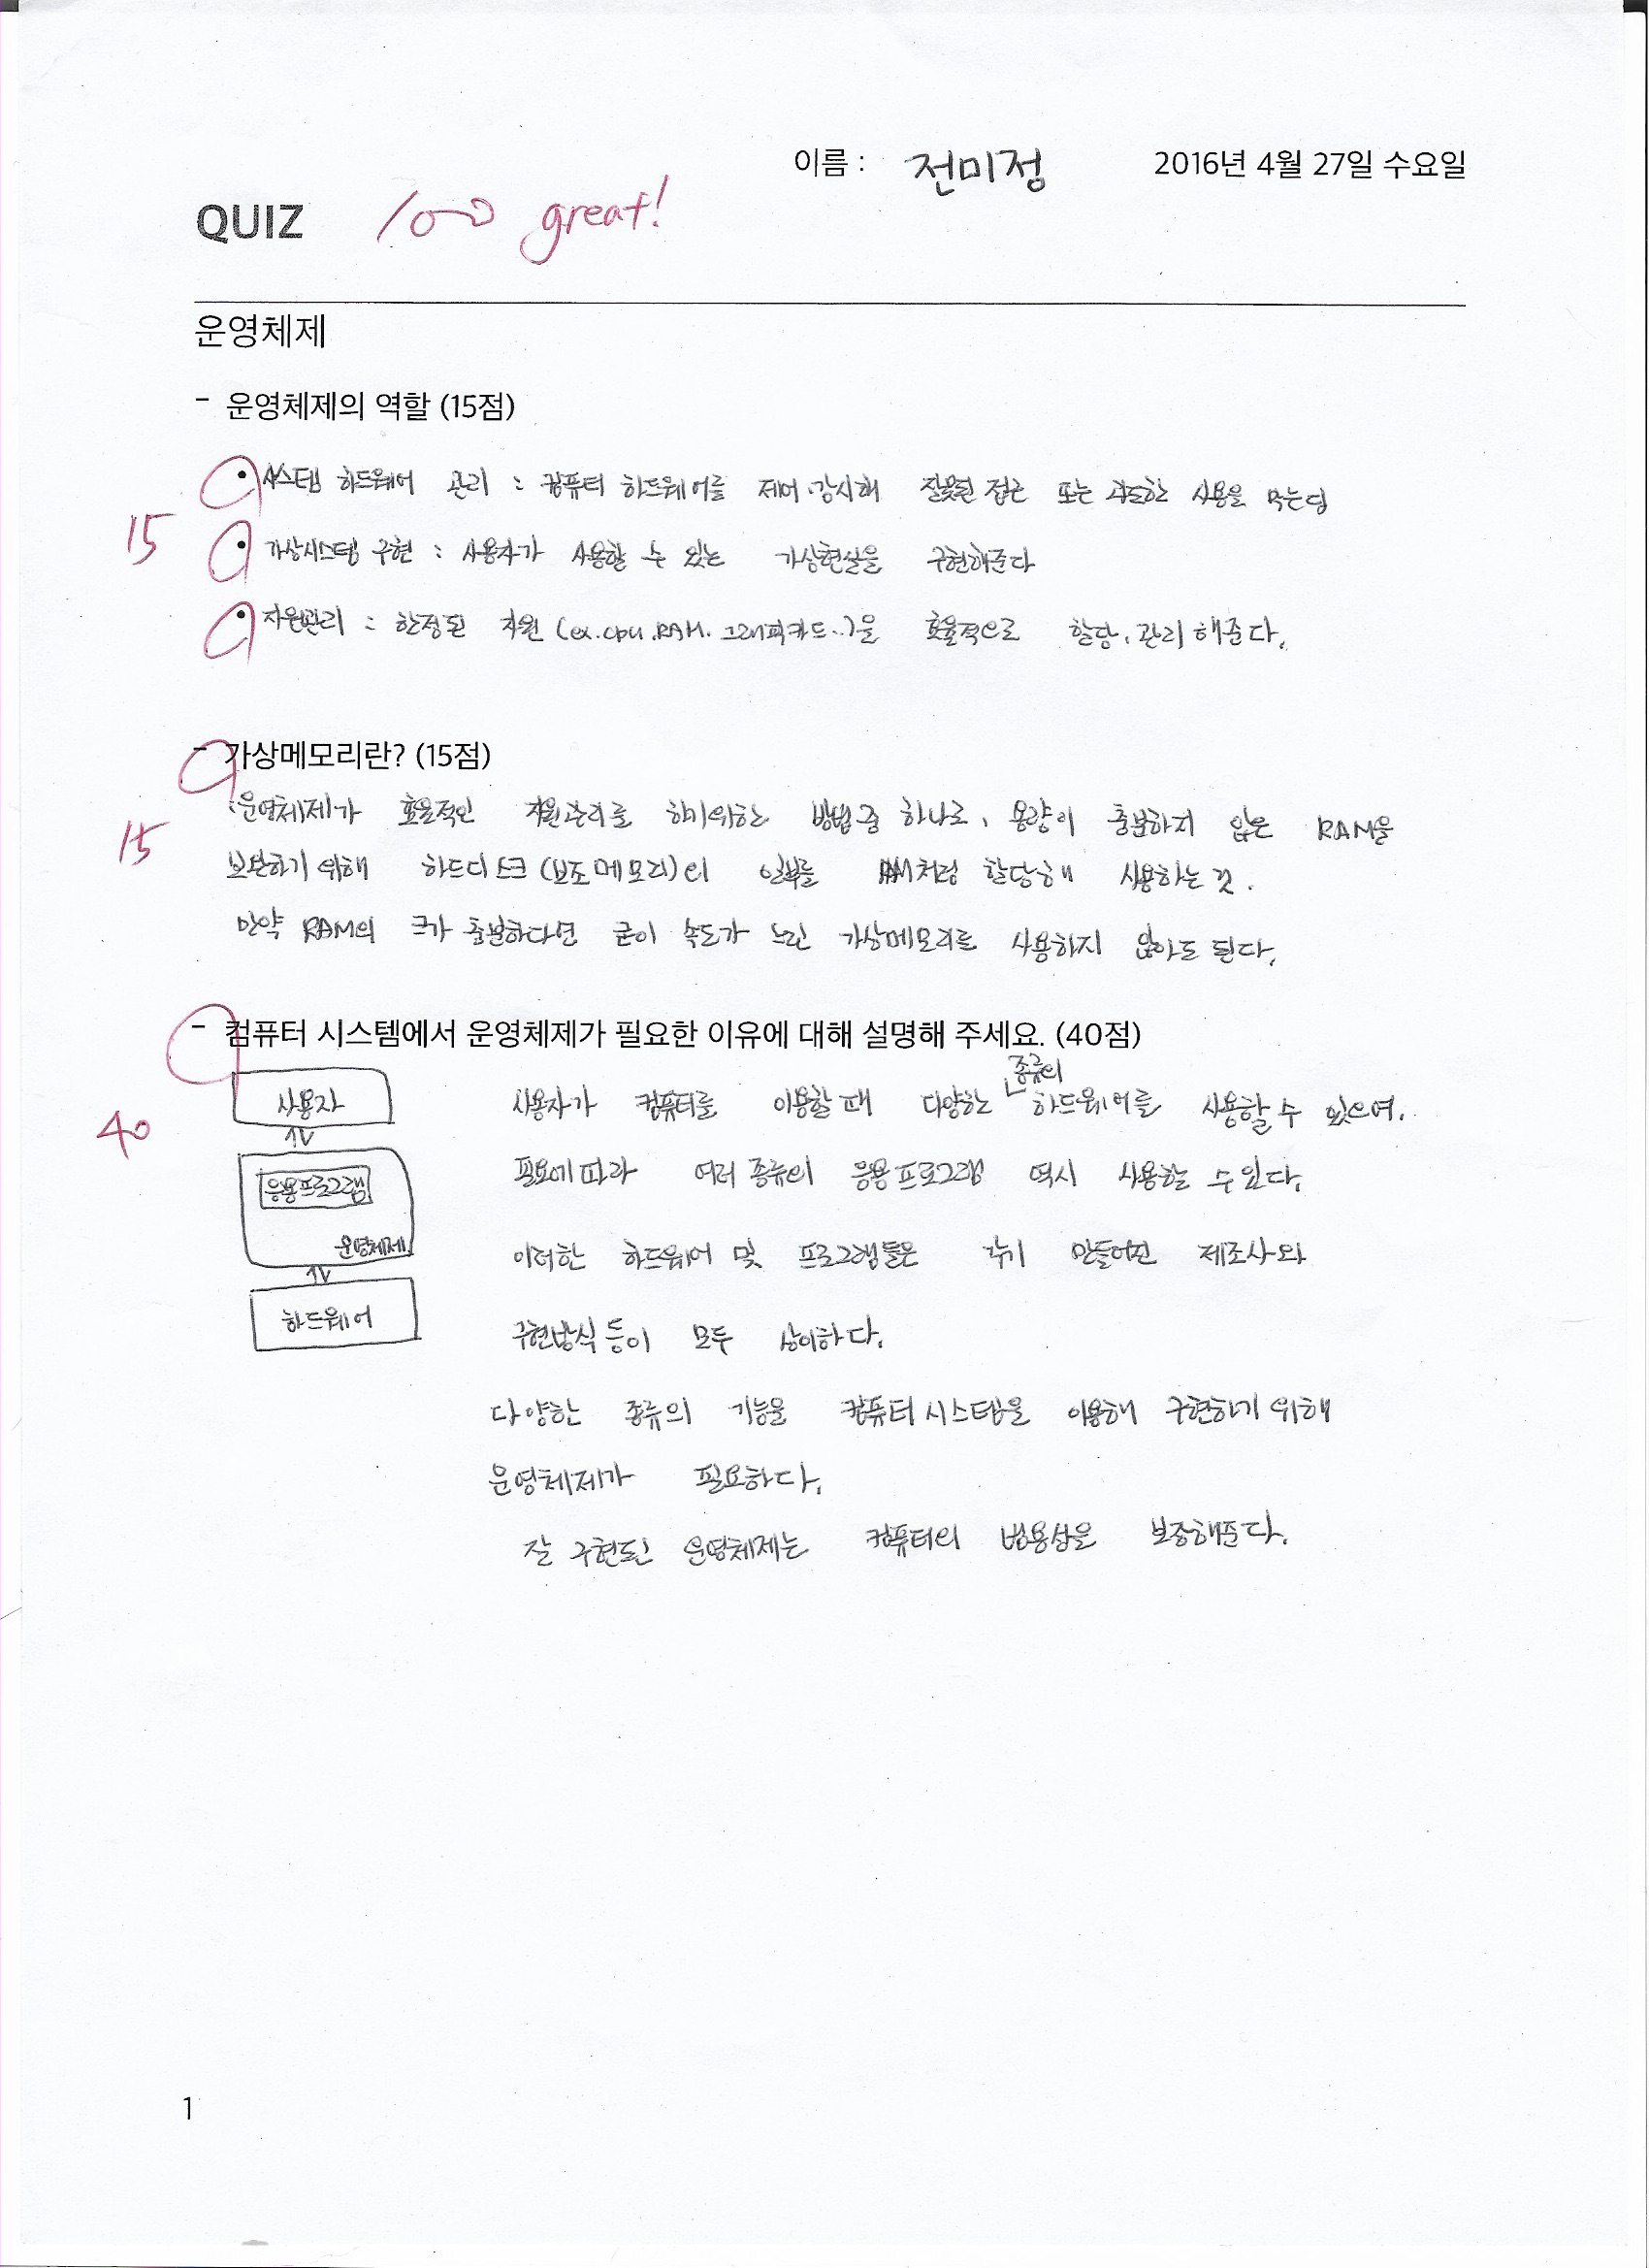 이름 : 전미정 2016년 4월 27일 수요일
QUIZ 100 great!
운영체제
- 운영체제의 역할 (15점)
• 시스템 하드웨어 관리 : 컴퓨터 하드웨어를 제어.감시해 잘못된 접근 또는 과도한 사용을 막는당
15
• 가상시스템 구현 : 사용자가 사용할 수 있는 가상현실을 구현해준다
• 자원관리 : 한정된 자원 (ex.cpu.RAM.그래픽카드..)을 효율적으로 할당.관리해준다.
- 가상메모리란? (15점)
운영체제가 효율적인 자원관리를 하기위한 방법중 하나로, 용량이 충분하지 않은 RAM을
15
보완하기 위해 하드디스크 (보조메모리)의 일부를 RAM처럼 할당해 사용하는 것.
만약 RAM의 크가 충분하다면 굳이 속도가 느린 가상메모리를 사용하지 않아도 된다.
- 컴퓨터 시스템에서 운영체제가 필요한 이유에 대해 설명해 주세요. (40점)
40
사용자
응용프로그램
운영체제
하드웨어
사용자가 컴퓨터를 이용할 때 다양한 종류의 하드웨어를 사용할 수 있으며.
필요에 따라 여러 종류의 응용프로그램 역시 사용할 수 있다.
이러한 하드웨어 및 프로그램들은 각기 만들어진 제조사와
구현방식 등이 모두 상이하다.
다양한 종류의 기능을 컴퓨터시스템을 이용해 구현하기 위해
운영체제가 필요하다.
잘 구현된 운영체제는 컴퓨터의 범용성을 보장해준다.
1